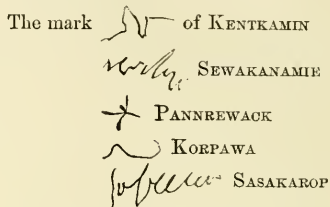 The mark of KENTKAMIN
SEWAKANAMIE
PANNREWACK
KORPAWA
SASAKAROP